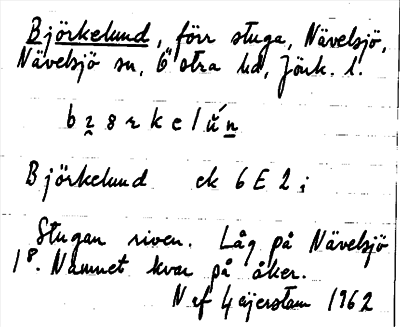 Björkelund, förr stuga, Nävelsjö,
Nävelsjö sn, Östra hd, Jönk. l.
Björkelund ek 6E2i
Stugan riven. Låg på Nävelsjö
1⁸. Namnet kvar på åker.
1962